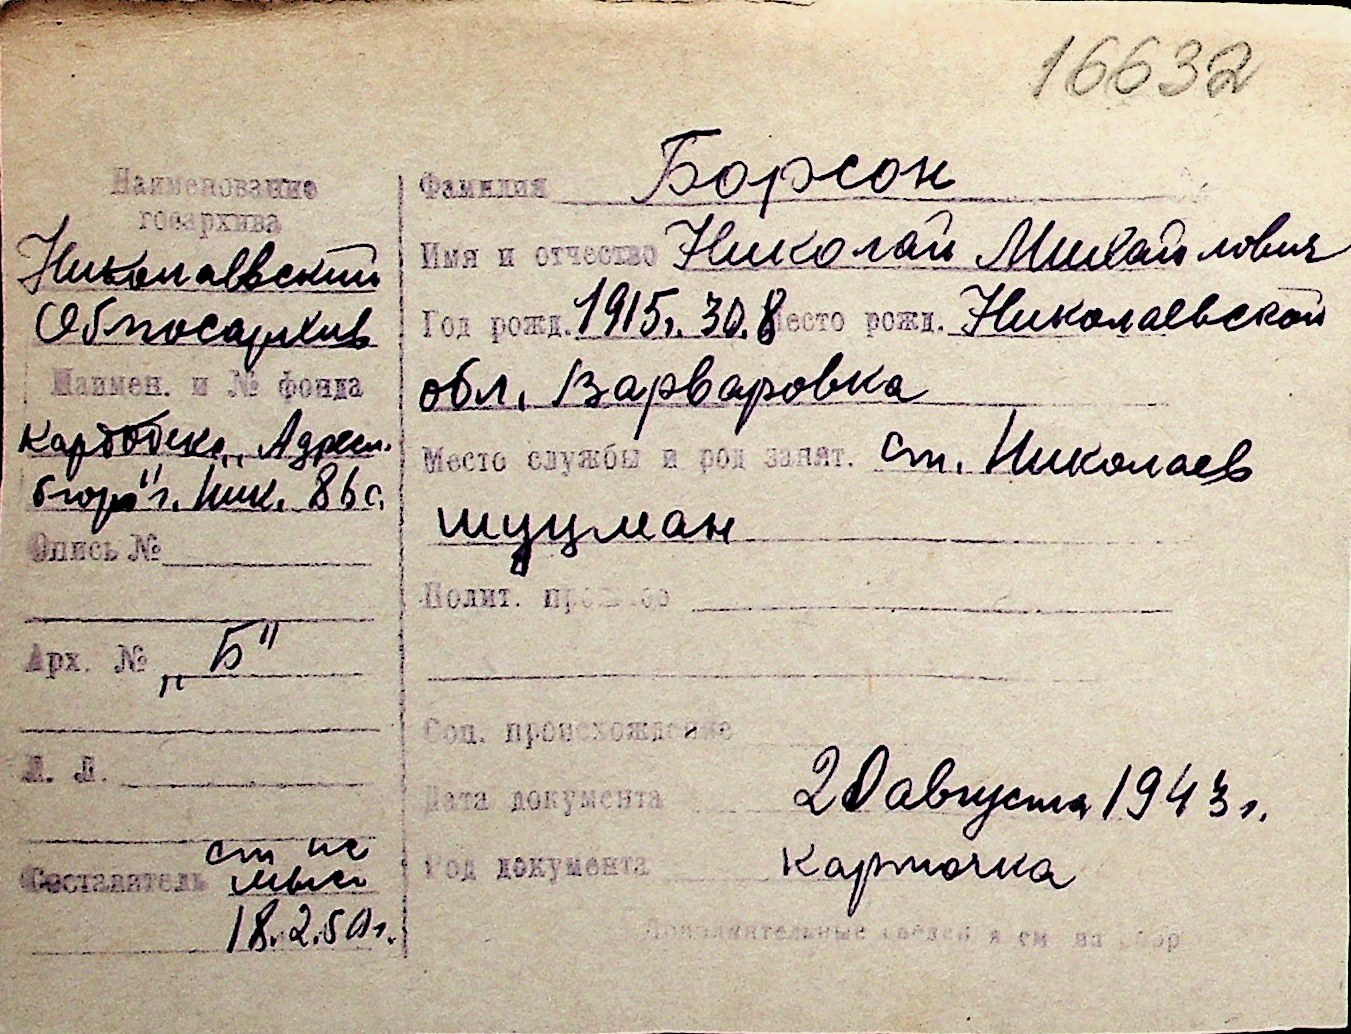 16632
Наименование
госархива
Николаевский
Облгосархив
Наимен. и № фонда
Картотека „Адресн.
бюро" г. Ник. 86 с.
Опись №
Арх. № „Б"
Л. Л.
Составатель
18.2.50 г.
Фамилия Борсон
Имя и отчество Николай Михайлович
Год рожд. 1915 г. 30.8 Место рожд. Николаевской
обл. Варваровка
Место службы и род занят. ст. Николаев
шуцман
Полит. прошлое
Соц. происхождение
Дата документа 20 августа 1943 г.
Род документа карточка
Дополнительные сведения см. на обор